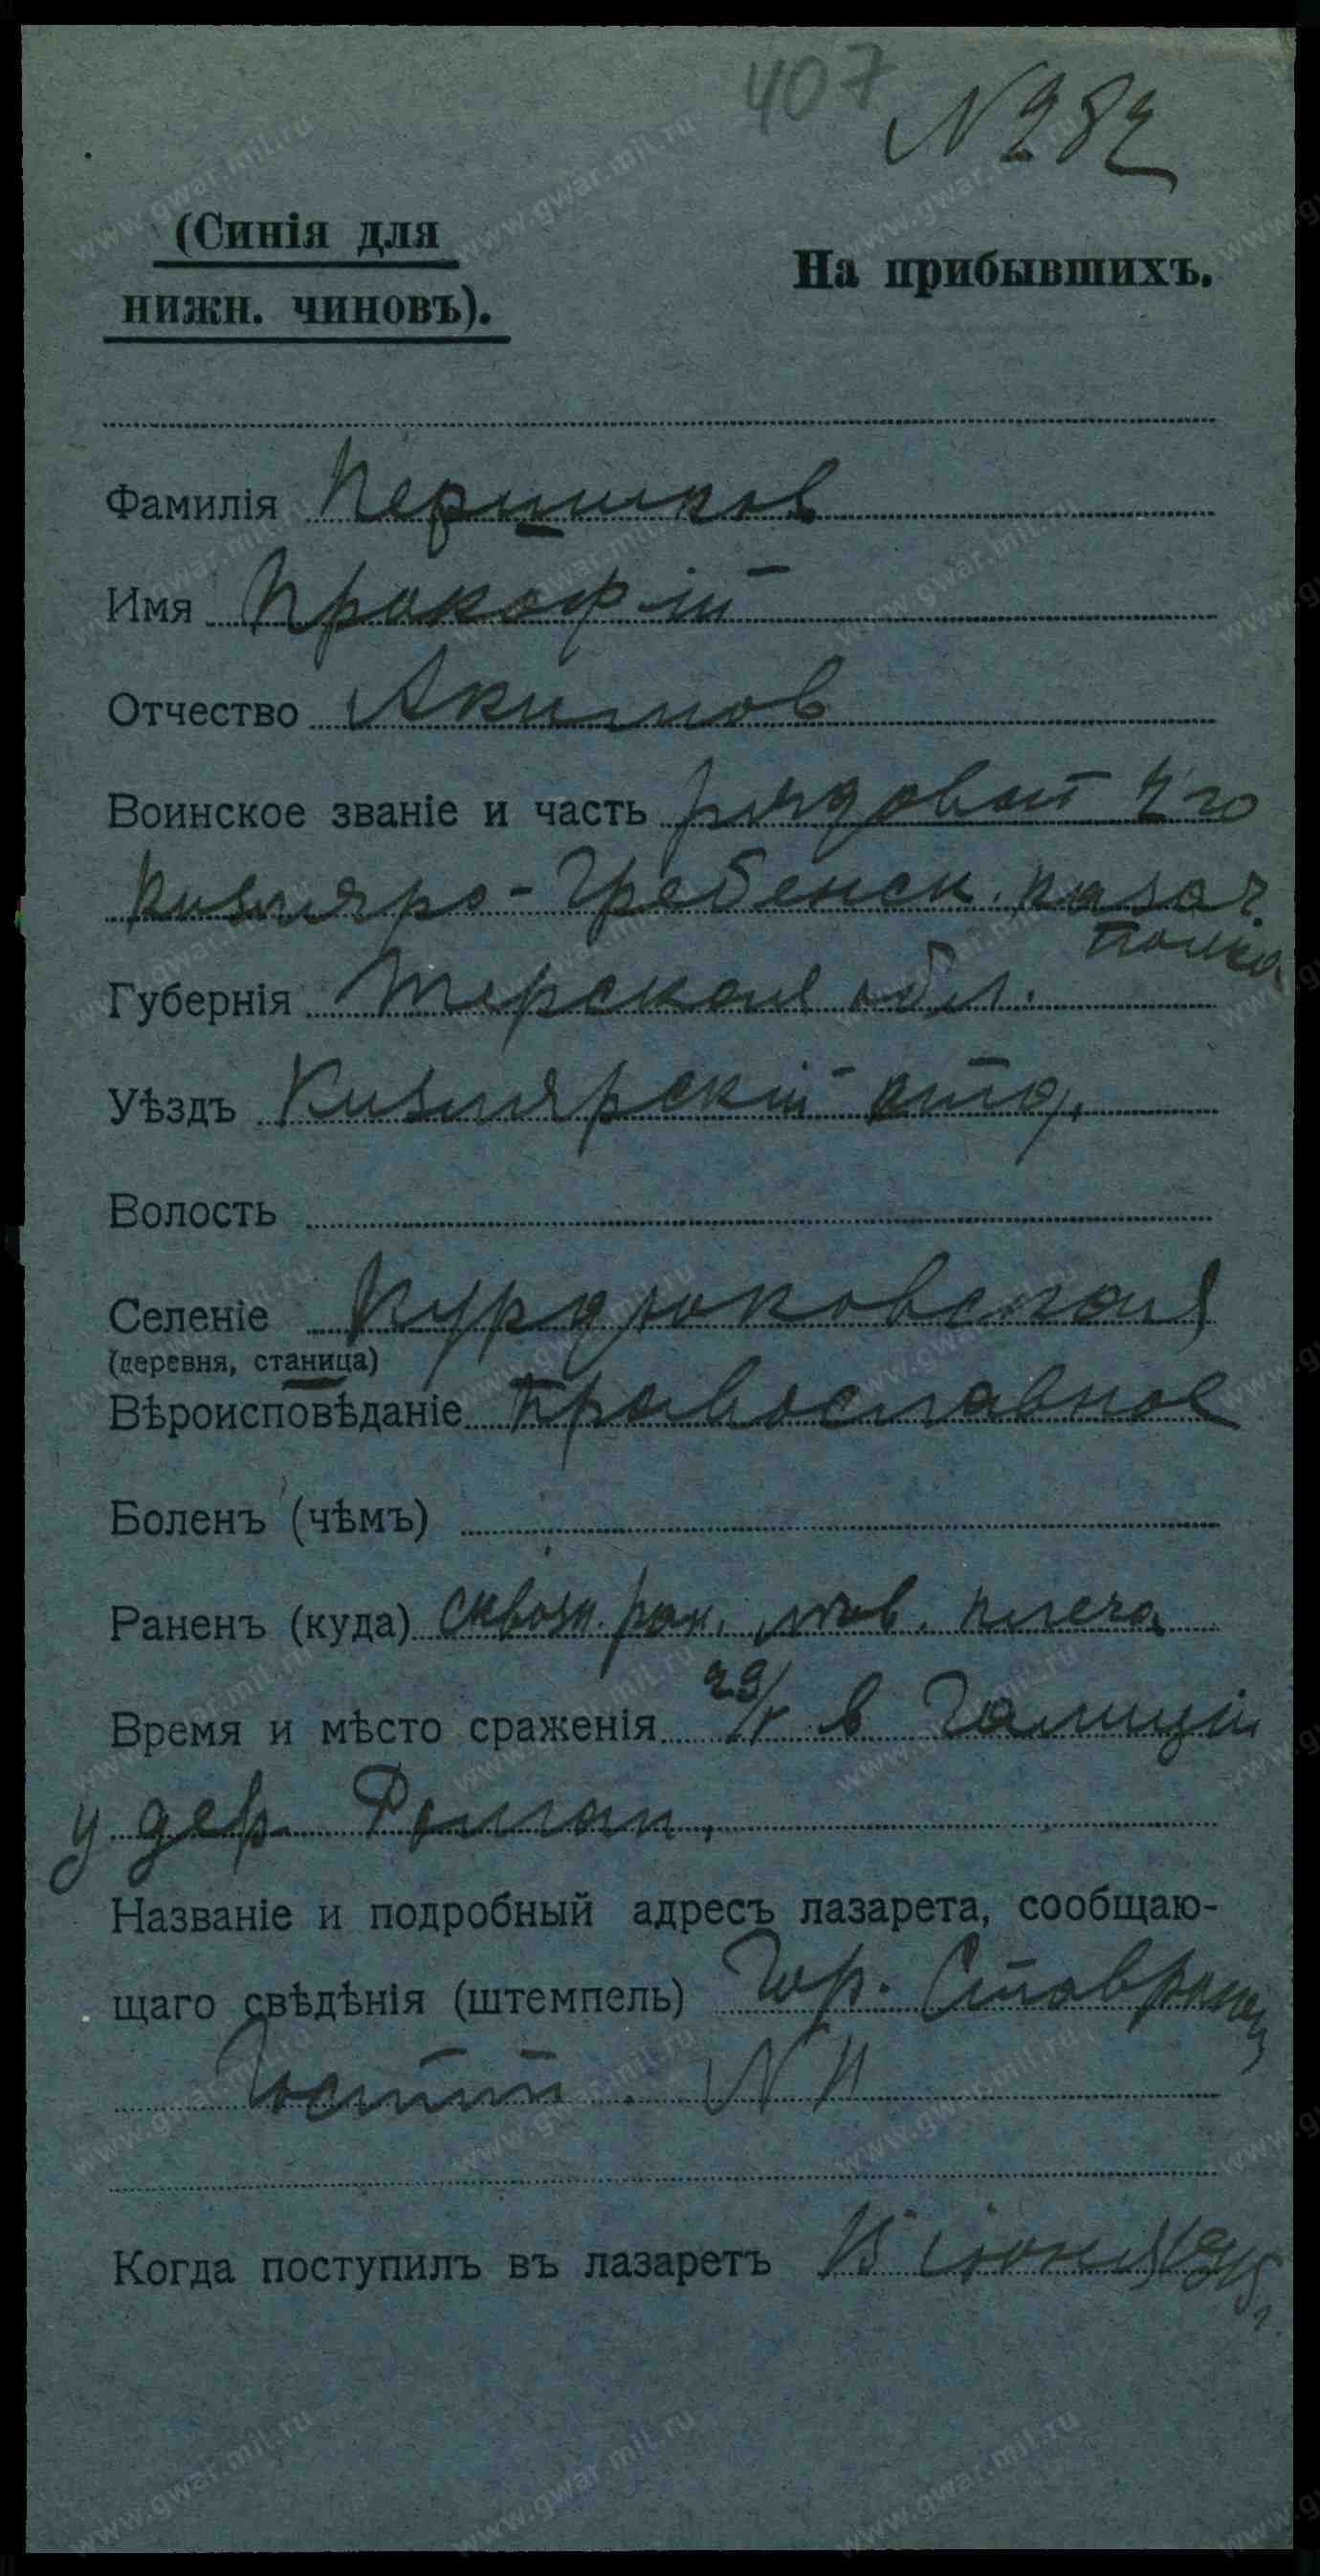 407 № 282
(Синія для
нижн. чиновъ).
На прибывшихъ.
Фамилія Першиков
Имя Прокофій
Отчество Акимов
Воинское званіе и часть рядовой 2го
Кизляро-Гребенск. казач.
полка
Губернія Терская обл.
Уѣздъ Кизлярскій отд.
Волость
Селеніе Курдюковская
(деревня, станица)
Вѣроисповѣданіе Православное
Боленъ (чѣмъ)
Раненъ (куда) сквозн. ран. лев. плеча
Время и мѣсто сраженія 29/V в Галиціи
у дер.
Названіе и подробный адресъ лазарета, сообщаю-
щаго свѣдѣнія (штемпель) Гор. Ставрополь
Госпит. №
Когда поступилъ въ лазаретъ 15 іюня 1915 г.
www.gwar.mil.ru